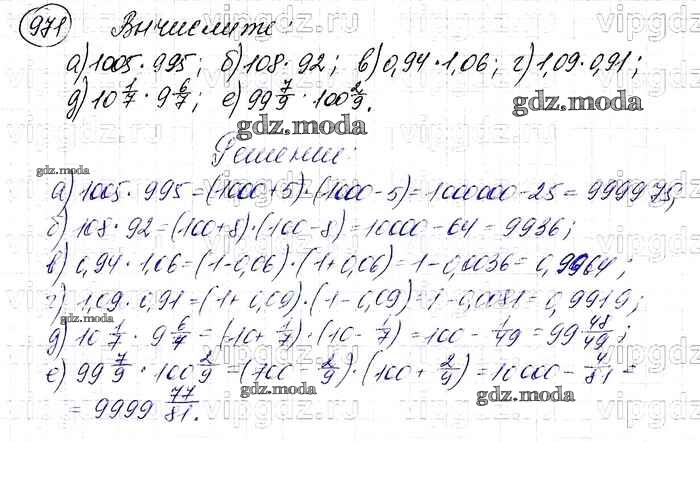 971 Вычислите:
а) 1005 · 995; б) 108 · 92; в) 0,94 · 1,06; г) 1,09 · 0,91;
д) 10 1/7 · 9 6/7; е) 99 7/9 · 100 2/9.
gdz.moda
gdz.moda
Решение:
gdz.moda
а) 1005 · 995 = (1000+5) · (1000-5) = 1000000-25 = 999975;
б) 108 · 92 = (100+8) · (100-8) = 10000-64 = 9936;
в) 0,94 · 1,06 = (1-0,06) · (1+0,06) = 1-0,0036 = 0,9964;
г) 1,09 · 0,91 = (1+0,09) · (1-0,09) = 1-0,0081 = 0,9919;
gdz.moda
д) 10 1/7 · 9 6/7 = (10+1/7) · (10-1/7) = 100-1/49 = 99 48/49;
е) 99 7/9 · 100 2/9 = (100-2/9) · (100+2/9) = 10000-4/81 =
gdz.moda
gdz.moda
= 9999 77/81.
vipgdz